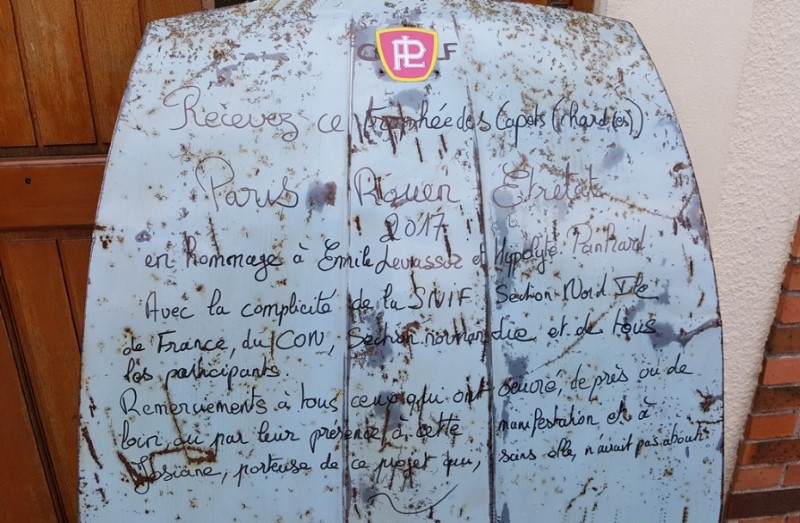 PL
Recevez ce trophée des Capots (chard(es))
Paris Rouen Etretat
2017
en hommage à Emile Levassor et Hypolyte Panhard
Avec la complicité de la SNIF Section Nord Ile
de France, du CON, Section normandie et de tous
les participants.
Remerciements à tous ceux qui ont oeuvré, de près ou de
loin, ou par leur présence, à cette manifestation et à
Josiane, porteuse de ce projet qui, sans elle, n'aurait pas abouti